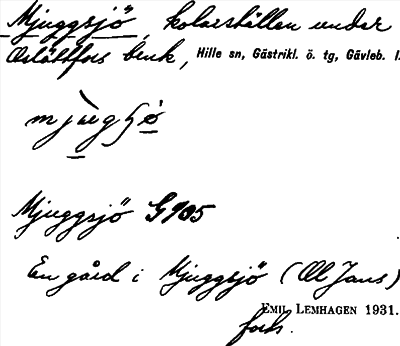 Mjuggsjö, kolarställen under
Oslättfors bruk, Hille sn, Gästrikl. ö. tg, Gävleb. l.
Mjuggsjö G905
En gård i Mjuggsjö (Ol Jans)
EMIL LEMHAGEN 1931.